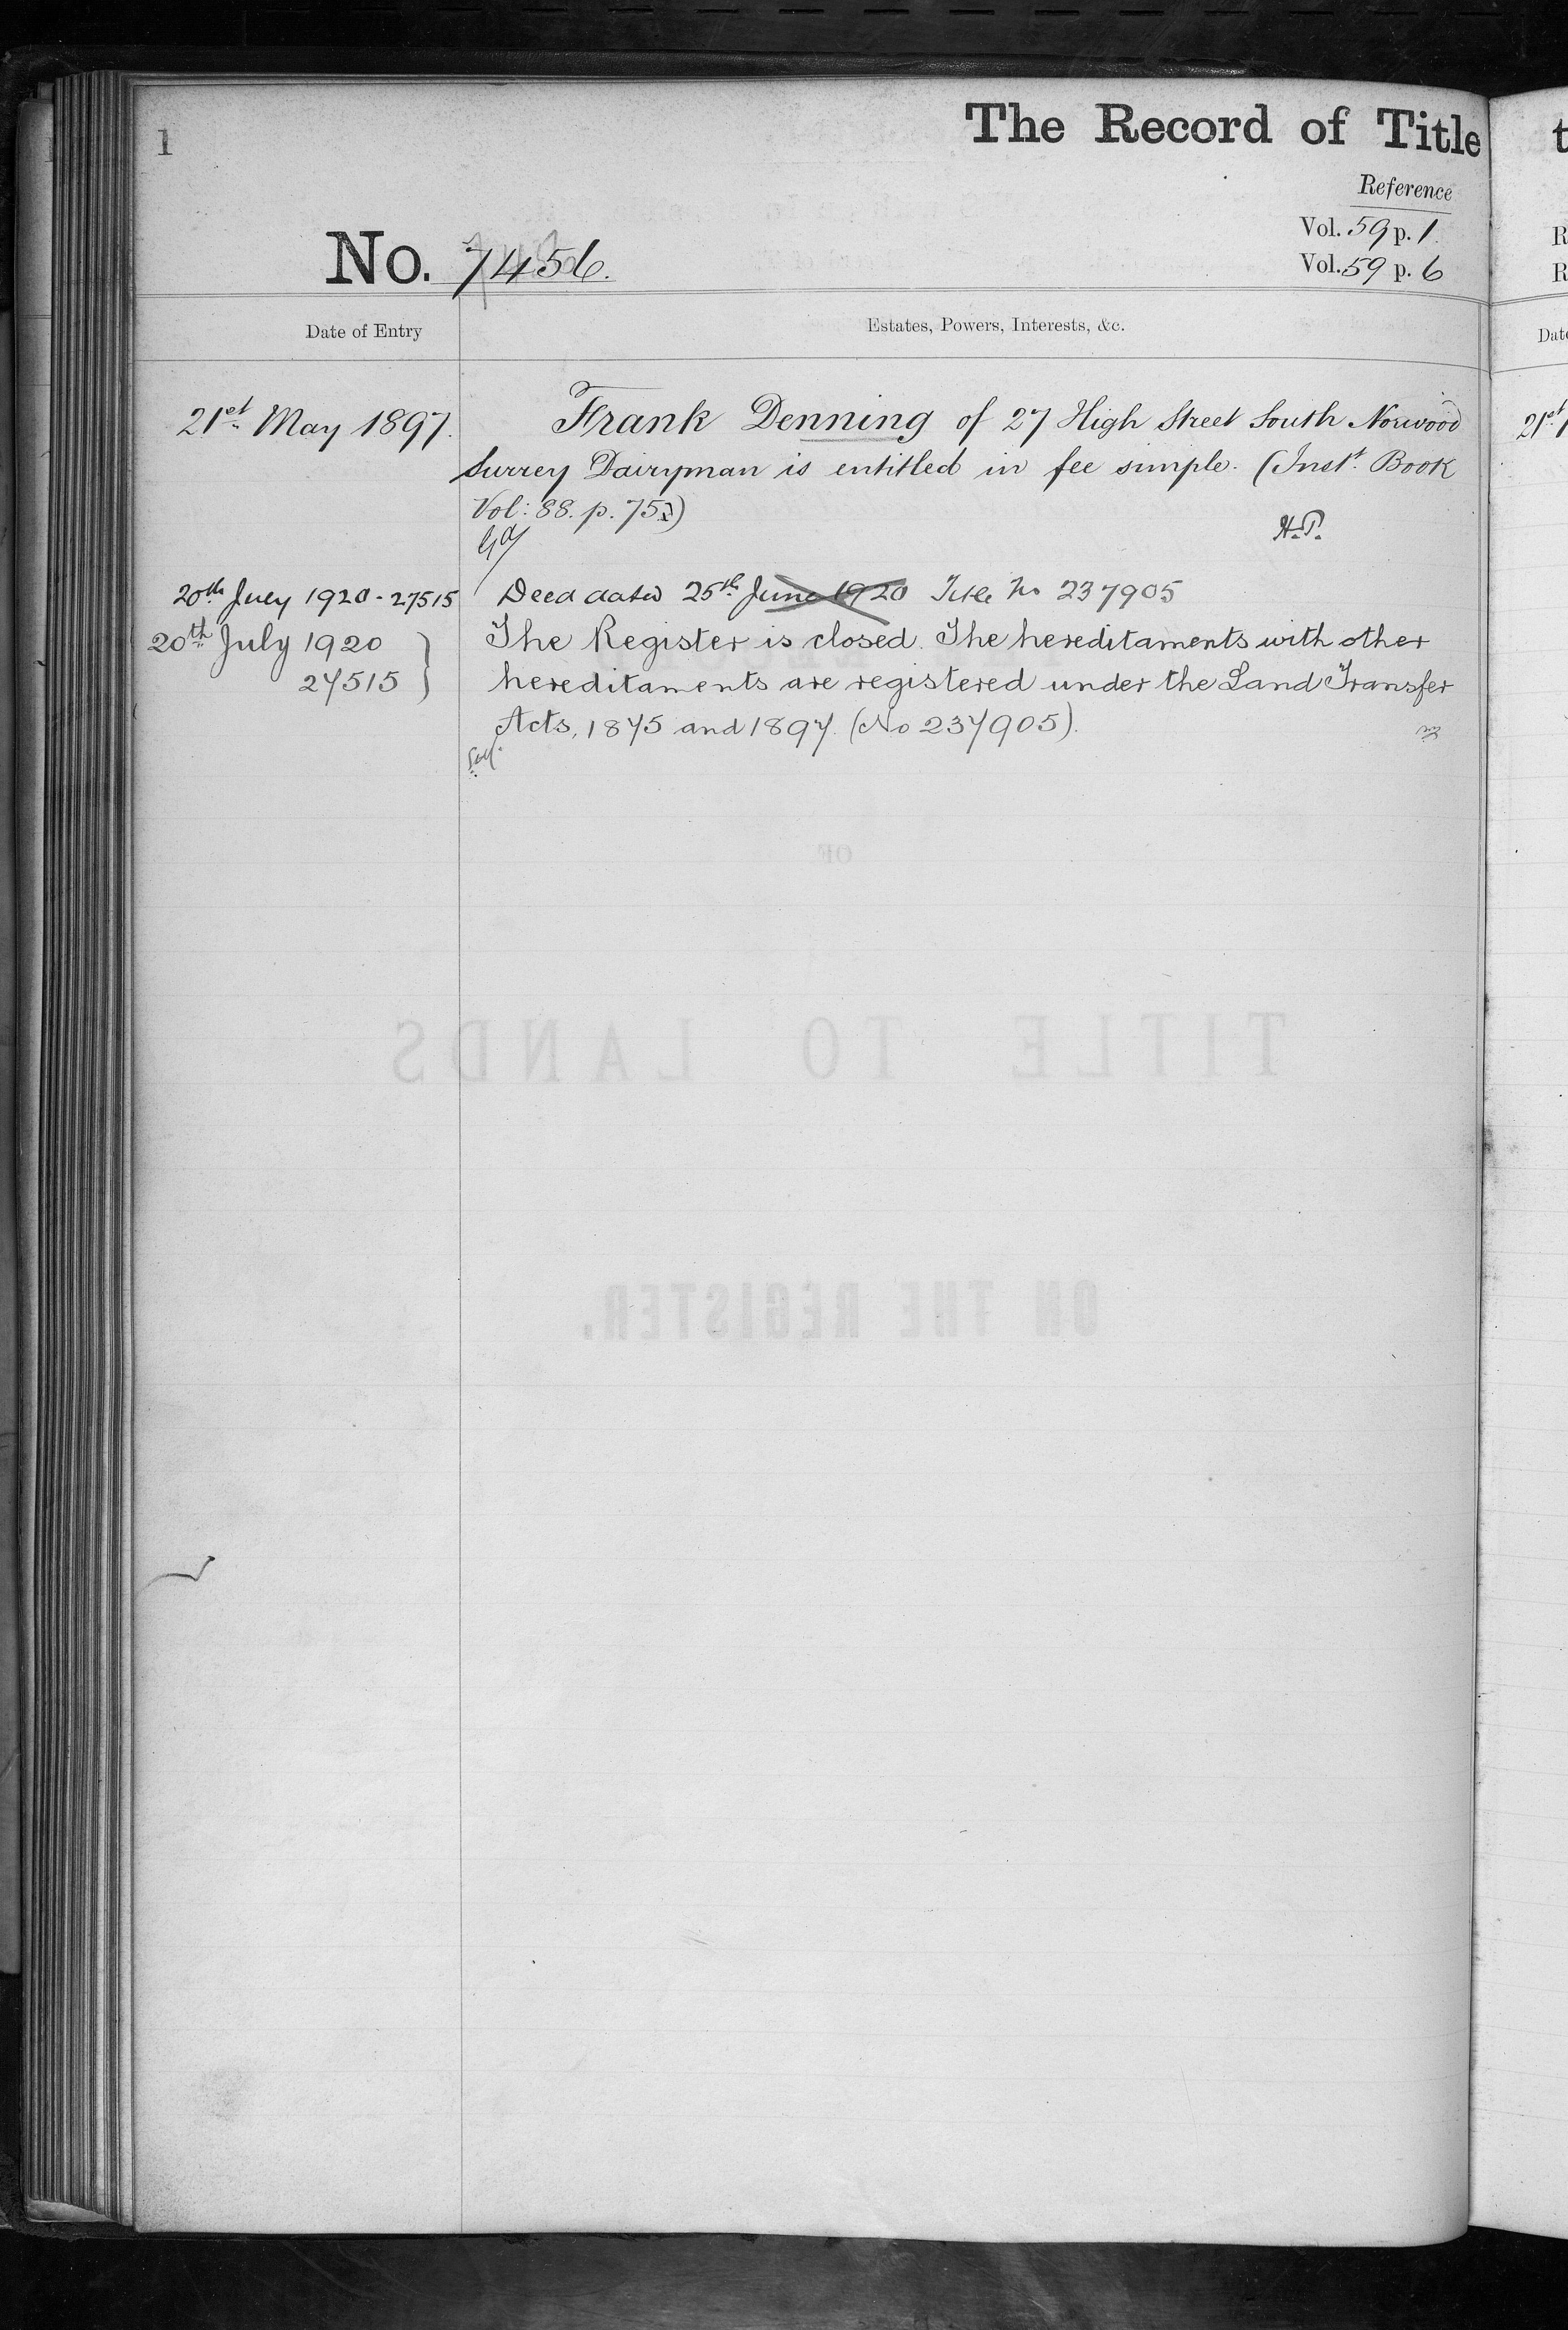 1
The Record of Title
Reference
Vol. 59 p. 1.
No. 7456.
Vol. 59 p. 6
Date of Entry
Estates, Powers, Interests, &c.
21st May 1897.
Frank Denning of 27 High Street South Norwood
Surrey Dairyman is entitled in fee simple. (Inst. Book
Vol: 88. p. 75)
H.P.
20th July 1920 - 27515
Deed dated 25th June 1920 Title No 237905
20th July 1920
The Register is closed. The hereditaments with other
27515
hereditaments are registered under the Land Transfer
Acts, 1875 and 1897. (No 237905).
OF
TITLE TO LANDS
ON THE REGISTER.
t
R
R
Date
21st